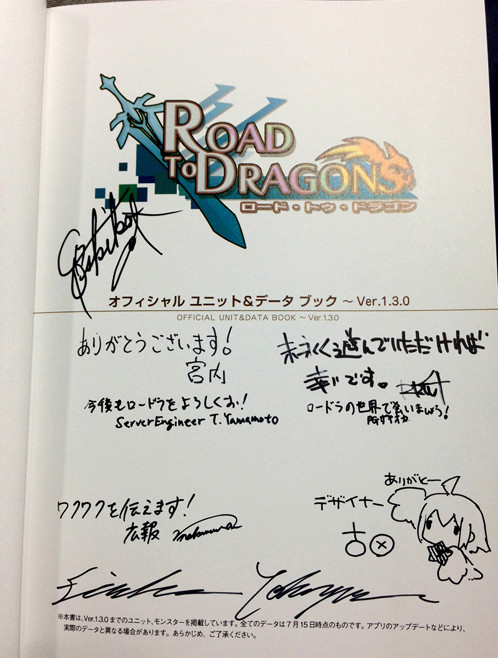 ROAD
TO DRAGONS
ロード・トゥ・ドラゴン
オフィシャル ユニット&データ ブック ～ Ver.1.3.0
OFFICIAL UNIT&DATA BOOK ～ Ver.1.3.0
ありがとうございます!
宮内
末ながく遊んでいただければ
幸いです。
今後もロードラをよろしくお!
ServerEngineer T.Yamamoto
ロードラの世界で会いましょう!
ワクワクを伝えます!
広報
ありがとー
デザイナー
※本書は、Ver.1.3.0までのユニット、モンスターを掲載しています。全てのデータは7月15日時点のものです。アプリのアップデートなどにより、
実際のデータと異なる場合があります。あらかじめ、ご了承ください。